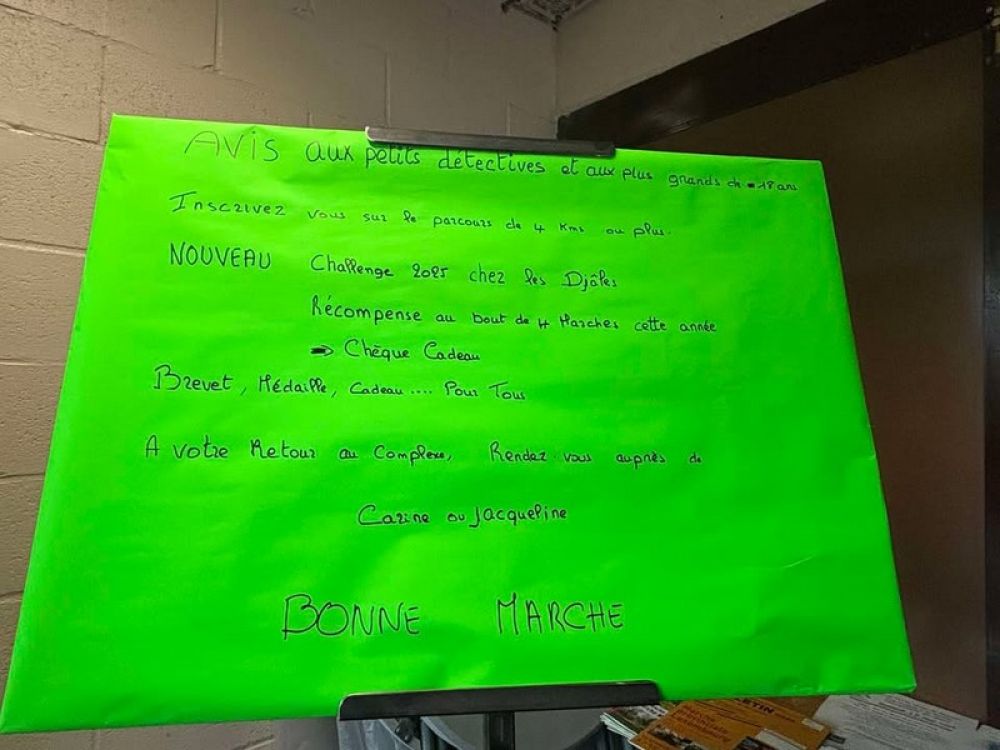 AVIS aux petits détectives et aux plus grands de - 18 ans
Inscrivez vous sur le parcours de 4 Kms ou plus.
NOUVEAU Challenge 2025 chez les Djâles
Récompense au bout de 4 Marches cette année
⇒ Chèque Cadeau
Brevet, Médaille, Cadeau .... Pour Tous
A votre Retour au Complexe, Rendez vous auprès de
Carine ou Jacqueline
BONNE MARCHE